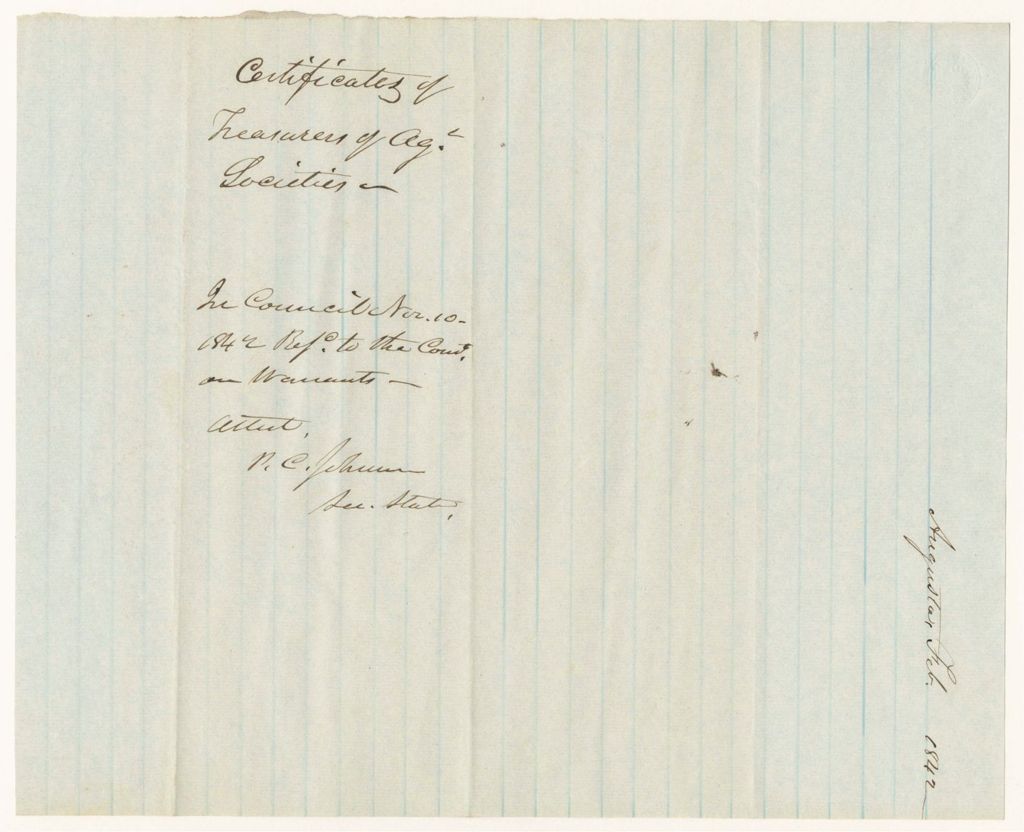 Certificates of
Treasurers of Ag.l
Societies —
In Council Nov. 10-
1842 Ref.d to the Com.e
on Warrants —
Attest,
P. C. Johnson
Sec. State,
Augusta, Feb. 1842